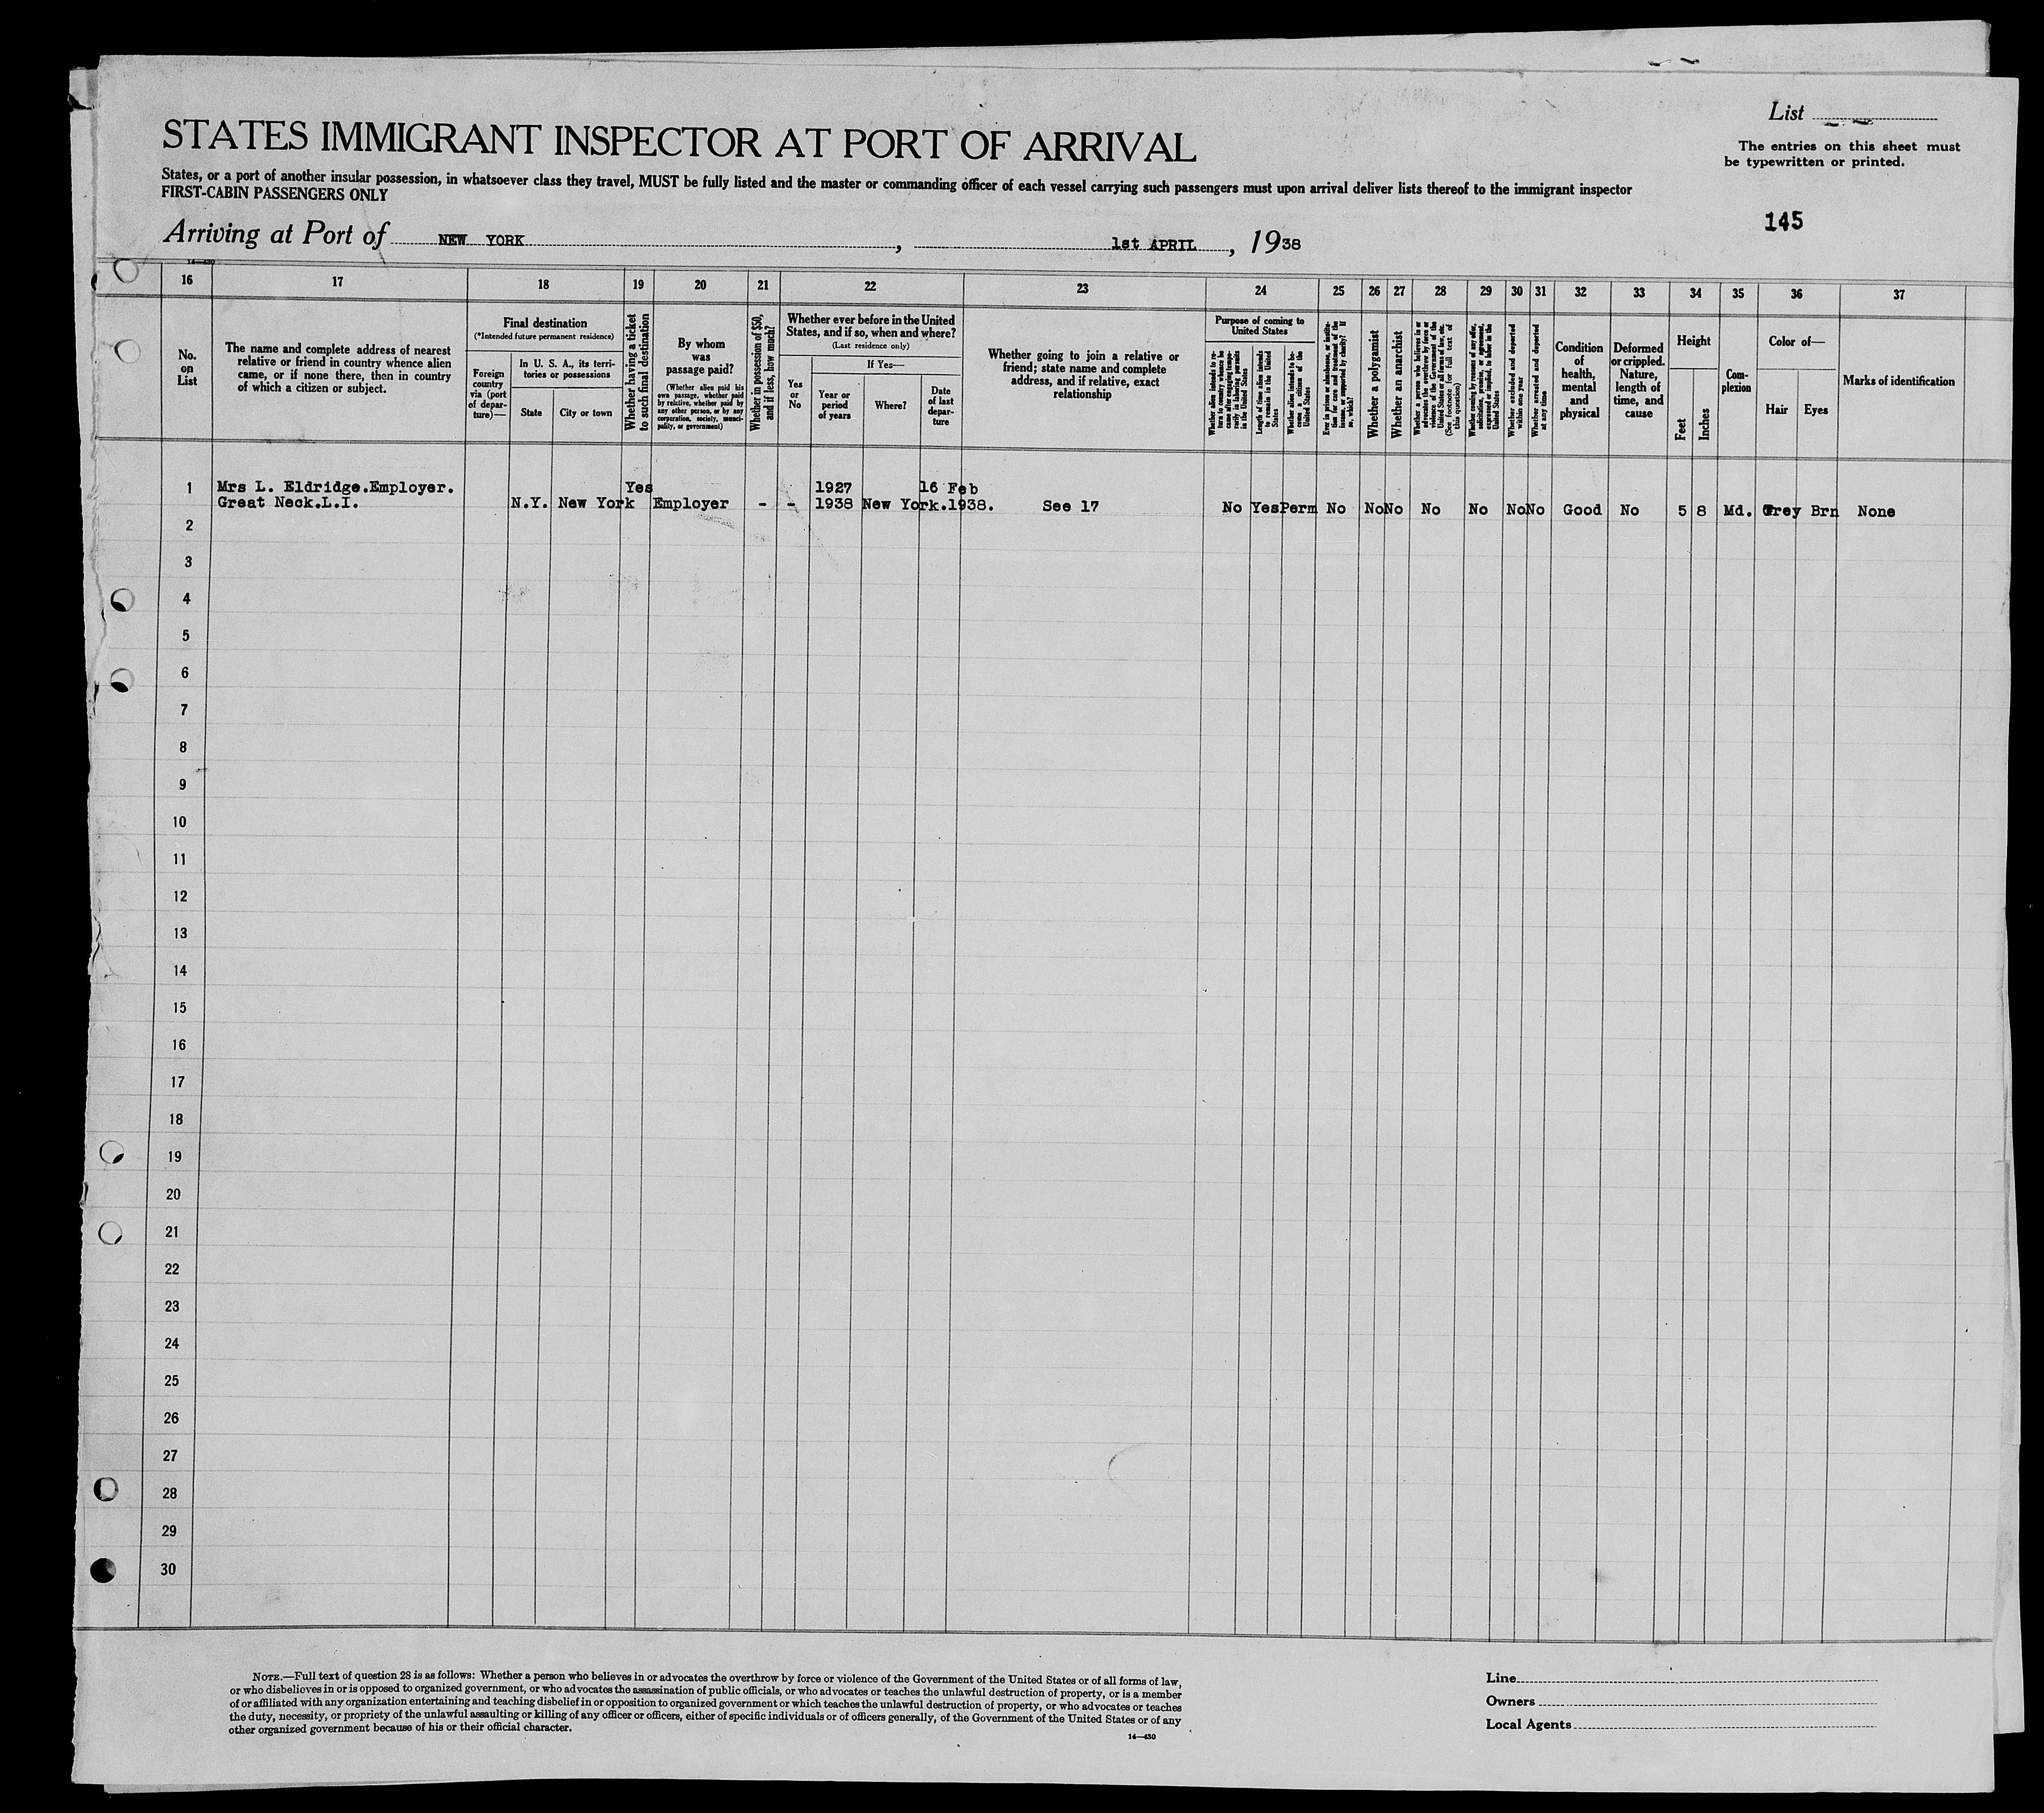 List
STATES IMMIGRANT INSPECTOR AT PORT OF ARRIVAL
The entries on this sheet must
be typewritten or printed.
States, or a port of another insular possession, in whatsoever class they travel, MUST be fully listed and the master or commanding officer of each vessel carrying such passengers must upon arrival deliver lists thereof to the immigrant inspector
FIRST-CABIN PASSENGERS ONLY
145
Arriving at Port of NEW YORK, 1st APRIL, 1938
14—430
16 17 18 19 20 21 22 23 24 25 26 27 28 29 30 31 32 33 34 35 36 37
No.
on
List
The name and complete address of nearest
relative or friend in country whence alien
came, or if none there, then in country
of which a citizen or subject.
Final destination
(*Intended future permanent residence)
Foreign
country
via (port
of depar-
ture)—
In U. S. A., its terri-
tories or possessions
State
City or town
Whether having a ticket
to such final destination
By whom
was
passage paid?
(Whether alien paid his
own passage, whether paid
by relative, whether paid by
any other person, or by any
corporation, society, munici-
pality, or government)
Whether in possession of $50,
and if less, how much?
Whether ever before in the United
States, and if so, when and where?
(Last residence only)
Yes
or
No
If Yes—
Year or
period
of years
Where?
Date
of last
depar-
ture
Whether going to join a relative or
friend; state name and complete
address, and if relative, exact
relationship
Purpose of coming to
United States
Whether alien intends to re-
turn to country whence he
came after engaging tempo-
rarily in laboring pursuits
in the United States
Length of time alien intends
to remain in the United
States
Whether alien intends to be-
come a citizen of the
United States
Ever in prison or almshouse, or institu-
tion for care and treatment of the
insane, or supported by charity? If
so, which?
Whether a polygamist
Whether an anarchist
Whether a person who believes in or
advocates the overthrow by force or
violence of the Government of the
United States or all forms of law, etc.
(See footnote for full text of
this question)
Whether coming by reason of any offer,
solicitation, promise, or agreement,
expressed or implied, to labor in the
United States
Whether excluded and deported
within one year
Whether arrested and deported
at any time
Condition
of
health,
mental
and
physical
Deformed
or crippled.
Nature,
length of
time, and
cause
Height
Feet
Inches
Com-
plexion
Color of—
Hair
Eyes
Marks of identification
1 Mrs L. Eldridge.Employer. Yes 1927 16 Feb
Great Neck.L.I. N.Y. New York Employer - - 1938 New York. 1938. See 17 No Yes Perm No No No No No No No Good No 5 8 Md. Grey Brn None
2
3
4
5
6
7
8
9
10
11
12
13
14
15
16
17
18
19
20
21
22
23
24
25
26
27
28
29
30
NOTE.—Full text of question 28 is as follows: Whether a person who believes in or advocates the overthrow by force or violence of the Government of the United States or of all forms of law,
or who disbelieves in or is opposed to organized government, or who advocates the assassination of public officials, or who advocates or teaches the unlawful destruction of property, or is a member
of or affiliated with any organization entertaining and teaching disbelief in or opposition to organized government or which teaches the unlawful destruction of property, or who advocates or teaches
the duty, necessity, or propriety of the unlawful assaulting or killing of any officer or officers, either of specific individuals or of officers generally, of the Government of the United States or of any
other organized government because of his or their official character.
14—430
Line
Owners
Local Agents